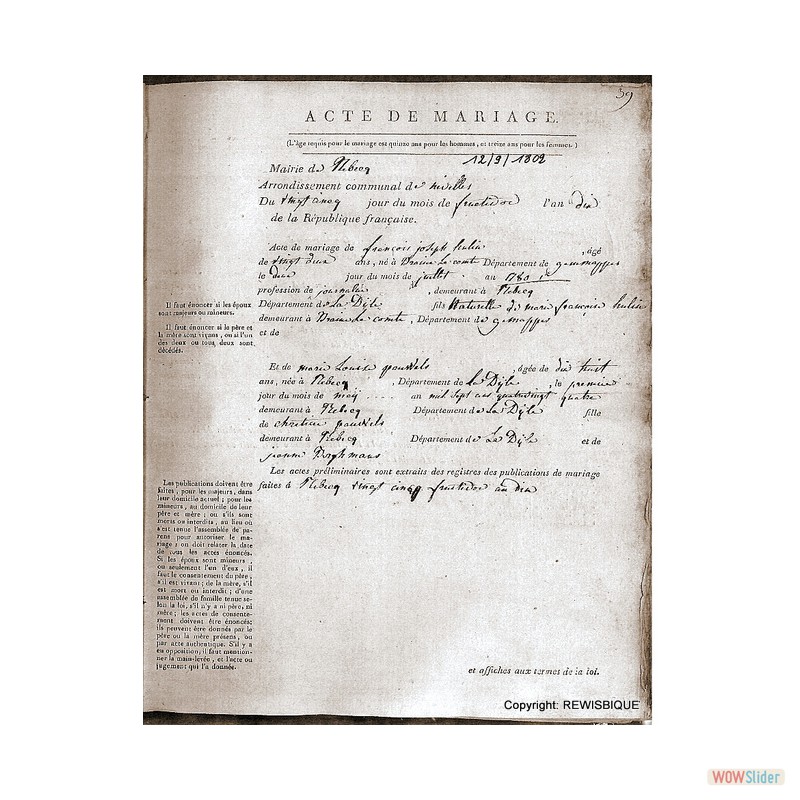 39
ACTE DE MARIAGE.
(L'âge requis pour le mariage est quinze ans pour les hommes, et treize ans pour les femmes.)
12/9/1802
Mairie de Rebecq
Arrondissement communal de nivelles
Du vingt cinq jour du mois de fructidor l'an dix
de la République française.
Acte de mariage de françois joseph hulin , âgé
de vingt deux ans, né à Braine Le comte Département de gemmappes
le deux jour du mois de juillet an 1780
profession de journalier , demeurant à Rebecq
Département de La Dyle fils Naturelle de marie françoise hulin
demeurant à Braine le comte, Département de gemappes
et de
Et de marie Louise pauwels , âgée de dix huit
ans, née à Rebecq , Département de La Dyle , le premier
jour du mois de mey an mil sept cent quatrevingt quatre
demeurant à Rebecq Département de La Dyle fille
de chretien pauwels
demeurant à Rebecq Département de La Dyle et de
jeanne Borghmans
Les actes préliminaires sont extraits des registres des publications de mariage
faites à Rebecq vingt cinq fructidor an dix
et affiches aux termes de la loi.
Il faut énoncer si les époux
sont majeurs ou mineurs.
Il faut énoncer si le père et
la mère sont vivans, ou si l'un
des deux ou tous deux sont
décédés.
Les publications doivent être
faites, pour les majeurs, dans
leur domicile actuel ; pour les
mineurs, au domicile de leur
père et mère ; ou s'ils sont
morts ou interdits, au lieu où
s'est tenue l'assemblée de pa-
rens pour autoriser le mar-
iage : on doit relater la date
de tous les actes énoncés.
Si les époux sont mineurs ;
ou seulement l'un d'eux, il
faut le consentement du père,
s'il est vivant ; de la mère, s'il
est mort ou interdit ; d'une
assemblée de famille tenue se-
lon la loi, s'il n'y a ni père, ni
mère ; les actes de consente-
ment doivent être énoncés;
ils peuvent être donnés par le
père ou la mère présens, ou
par acte authentique. S'il y a
eu opposition, il faut mention-
ner la main-levée, et l'acte ou
jugement qui l'a donnée.
Copyright: REWISBIQUE
WOWSlider